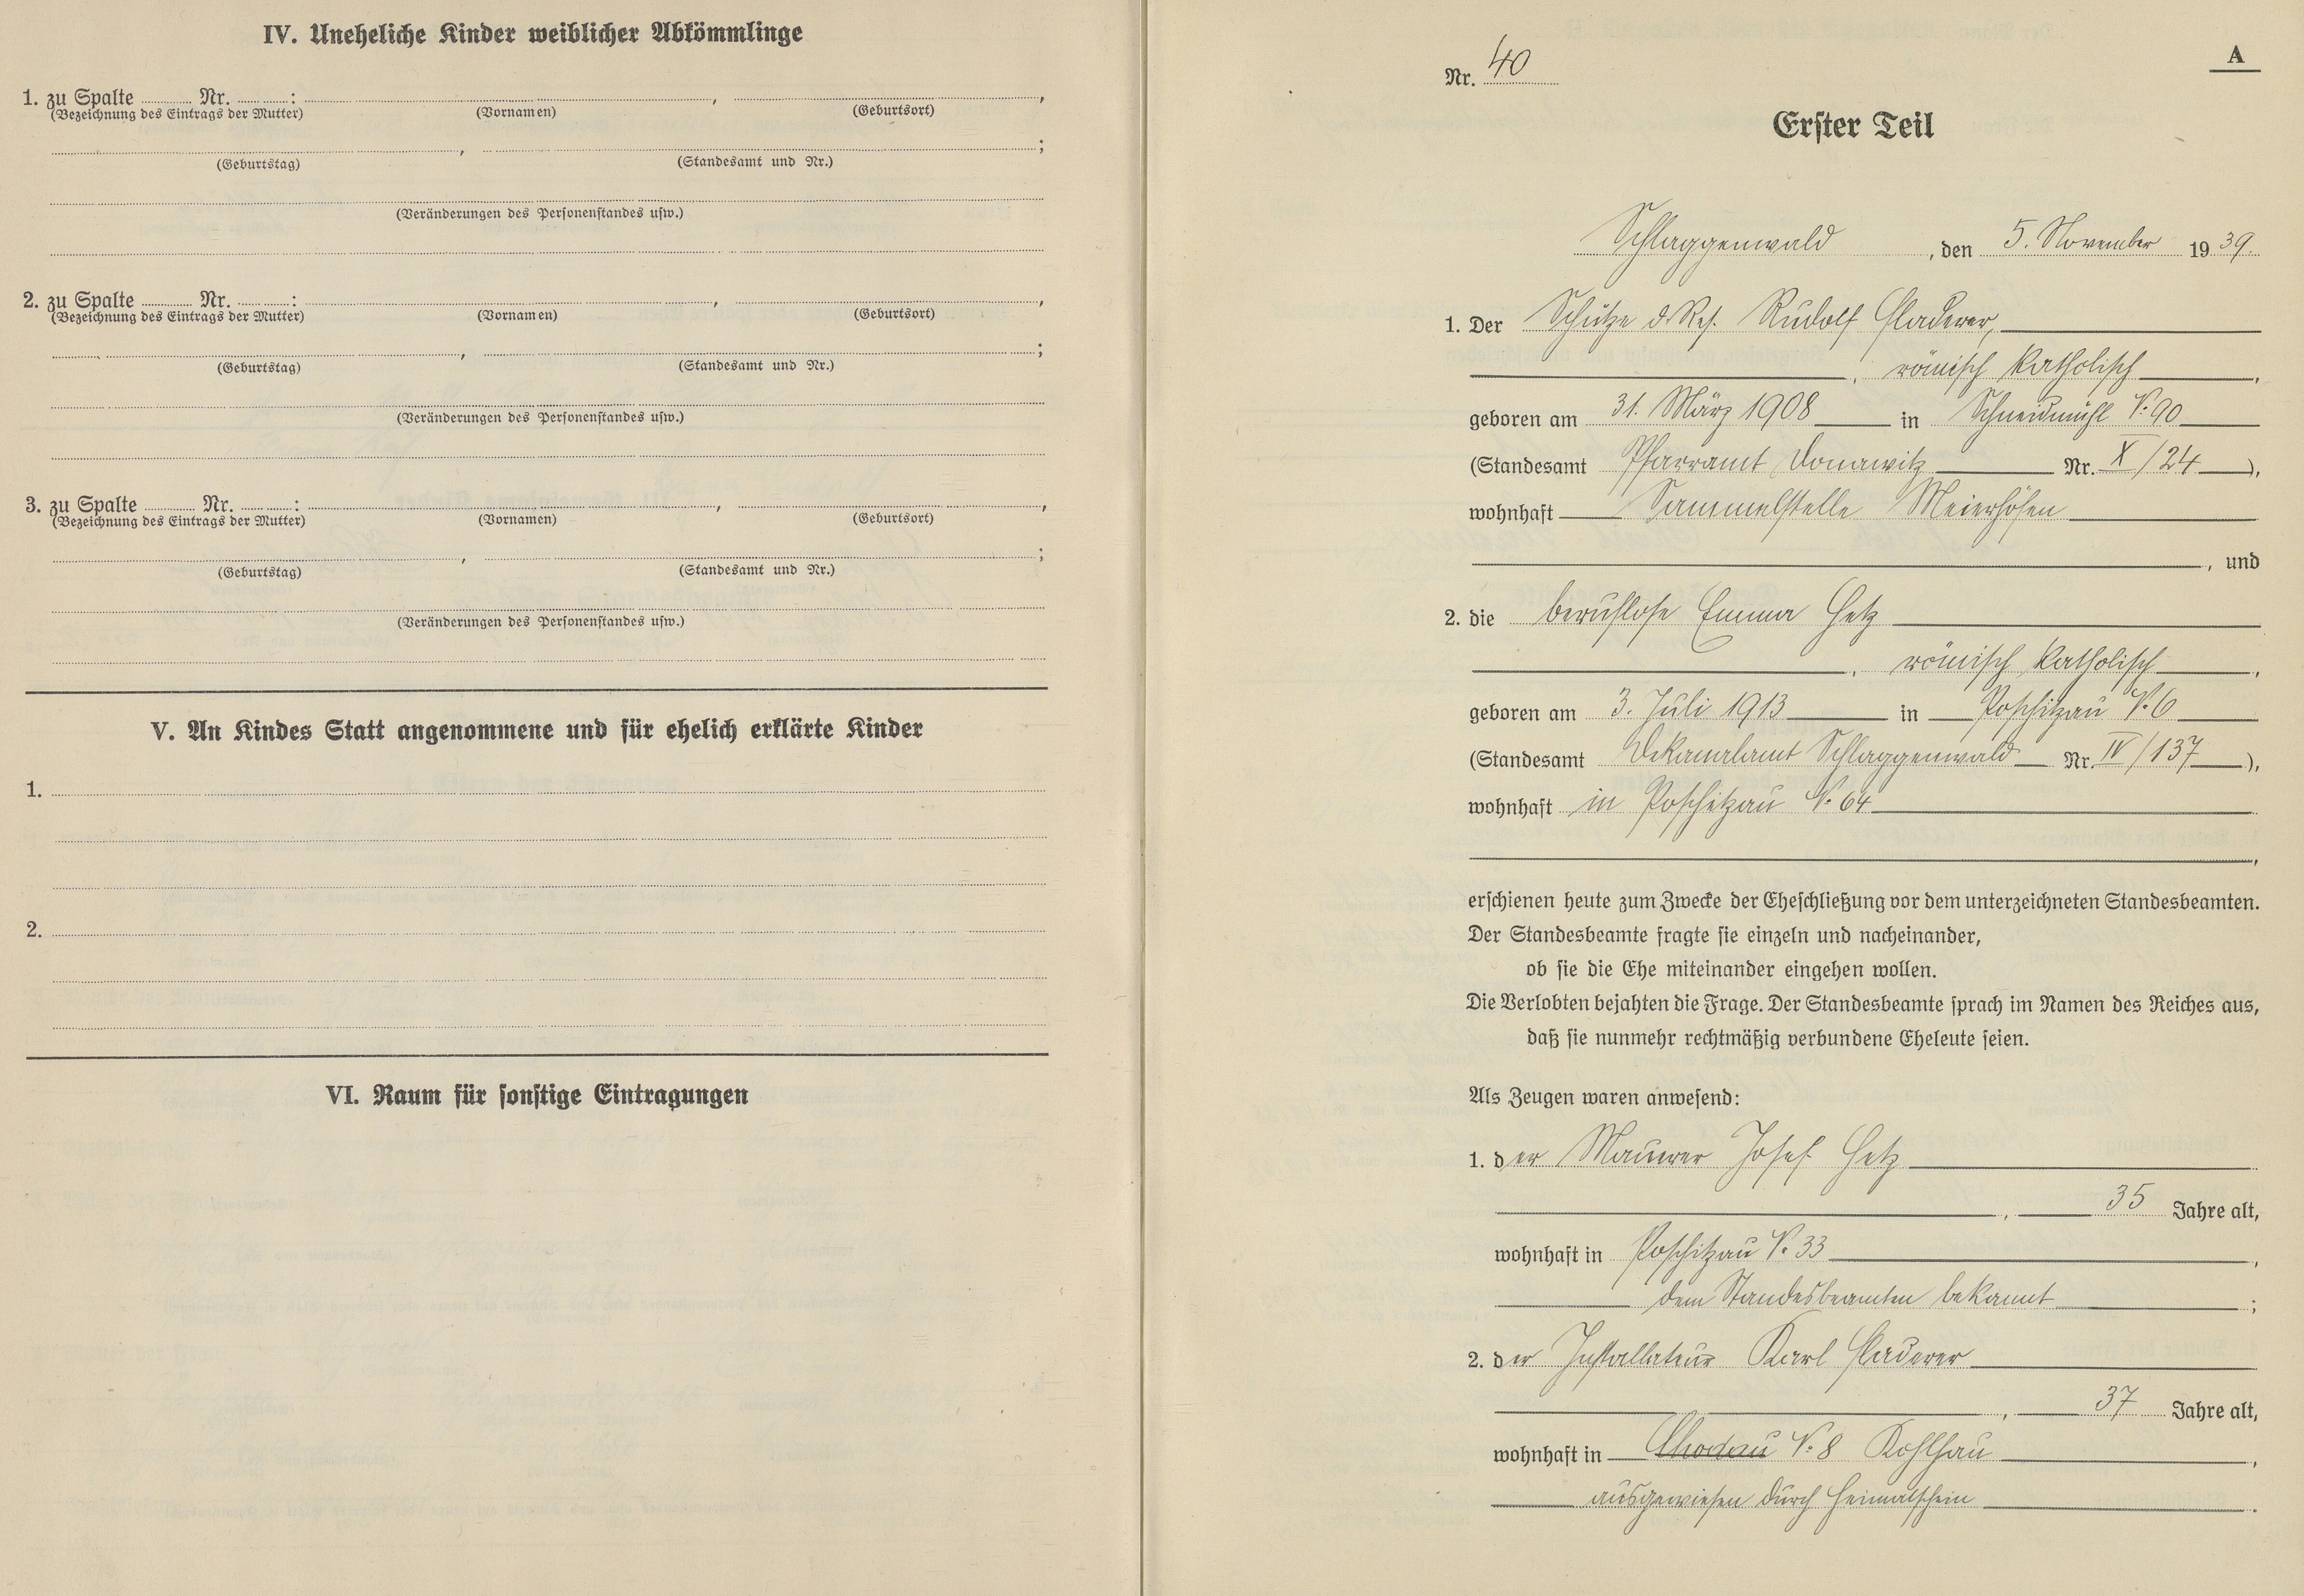 IV. Uneheliche Kinder weiblicher Abkömmlinge
1. zu Spalte ........ Nr. ........ : ........ , ........ ,
(Bezeichnung des Eintrags der Mutter) (Vornamen) (Geburtsort)
........ , ........ ;
(Geburtstag) (Standesamt und Nr.)
(Veränderungen des Personenstandes usw.)
2. zu Spalte ........ Nr. ........ : ........ , ........ ,
(Bezeichnung des Eintrags der Mutter) (Vornamen) (Geburtsort)
........ , ........ ;
(Geburtstag) (Standesamt und Nr.)
(Veränderungen des Personenstandes usw.)
3. zu Spalte ........ Nr. ........ : ........ , ........ ,
(Bezeichnung des Eintrags der Mutter) (Vornamen) (Geburtsort)
........ , ........ ;
(Geburtstag) (Standesamt und Nr.)
(Veränderungen des Personenstandes usw.)
V. An Kindes Statt angenommene und für ehelich erklärte Kinder
1.
2.
VI. Raum für sonstige Eintragungen
A
Nr. 40
Erster Teil
Schlaggenwald, den 5. November 1939.
1. Der Schütze d. Res. Rudolf Gladerer,
, römisch katholisch,
geboren am 31. März 1908 in Schneidmühl N: 90
(Standesamt Pfarramt Donawitz Nr. X/24),
wohnhaft Sammelstelle Meierhöfen
, und
2. die berufslose Emma Hetz
, römisch katholisch,
geboren am 3. Juli 1913 in Poschitzau N: 6
(Standesamt Dekanalamt Schlaggenwald Nr. IV/137),
wohnhaft in Poschitzau N: 64
,
erschienen heute zum Zwecke der Eheschließung vor dem unterzeichneten Standesbeamten.
Der Standesbeamte fragte sie einzeln und nacheinander,
ob sie die Ehe miteinander eingehen wollen.
Die Verlobten bejahten die Frage. Der Standesbeamte sprach im Namen des Reiches aus,
daß sie nunmehr rechtmäßig verbundene Eheleute seien.
Als Zeugen waren anwesend:
1. der Maurer Josef Hetz
, 35 Jahre alt,
wohnhaft in Poschitzau N: 33,
dem Standesbeamten bekannt;
2. der Installateur Karl Gladerer
, 37 Jahre alt,
wohnhaft in Chodau N: 8 Kohlhau,
ausgewiesen durch Heimatschein.